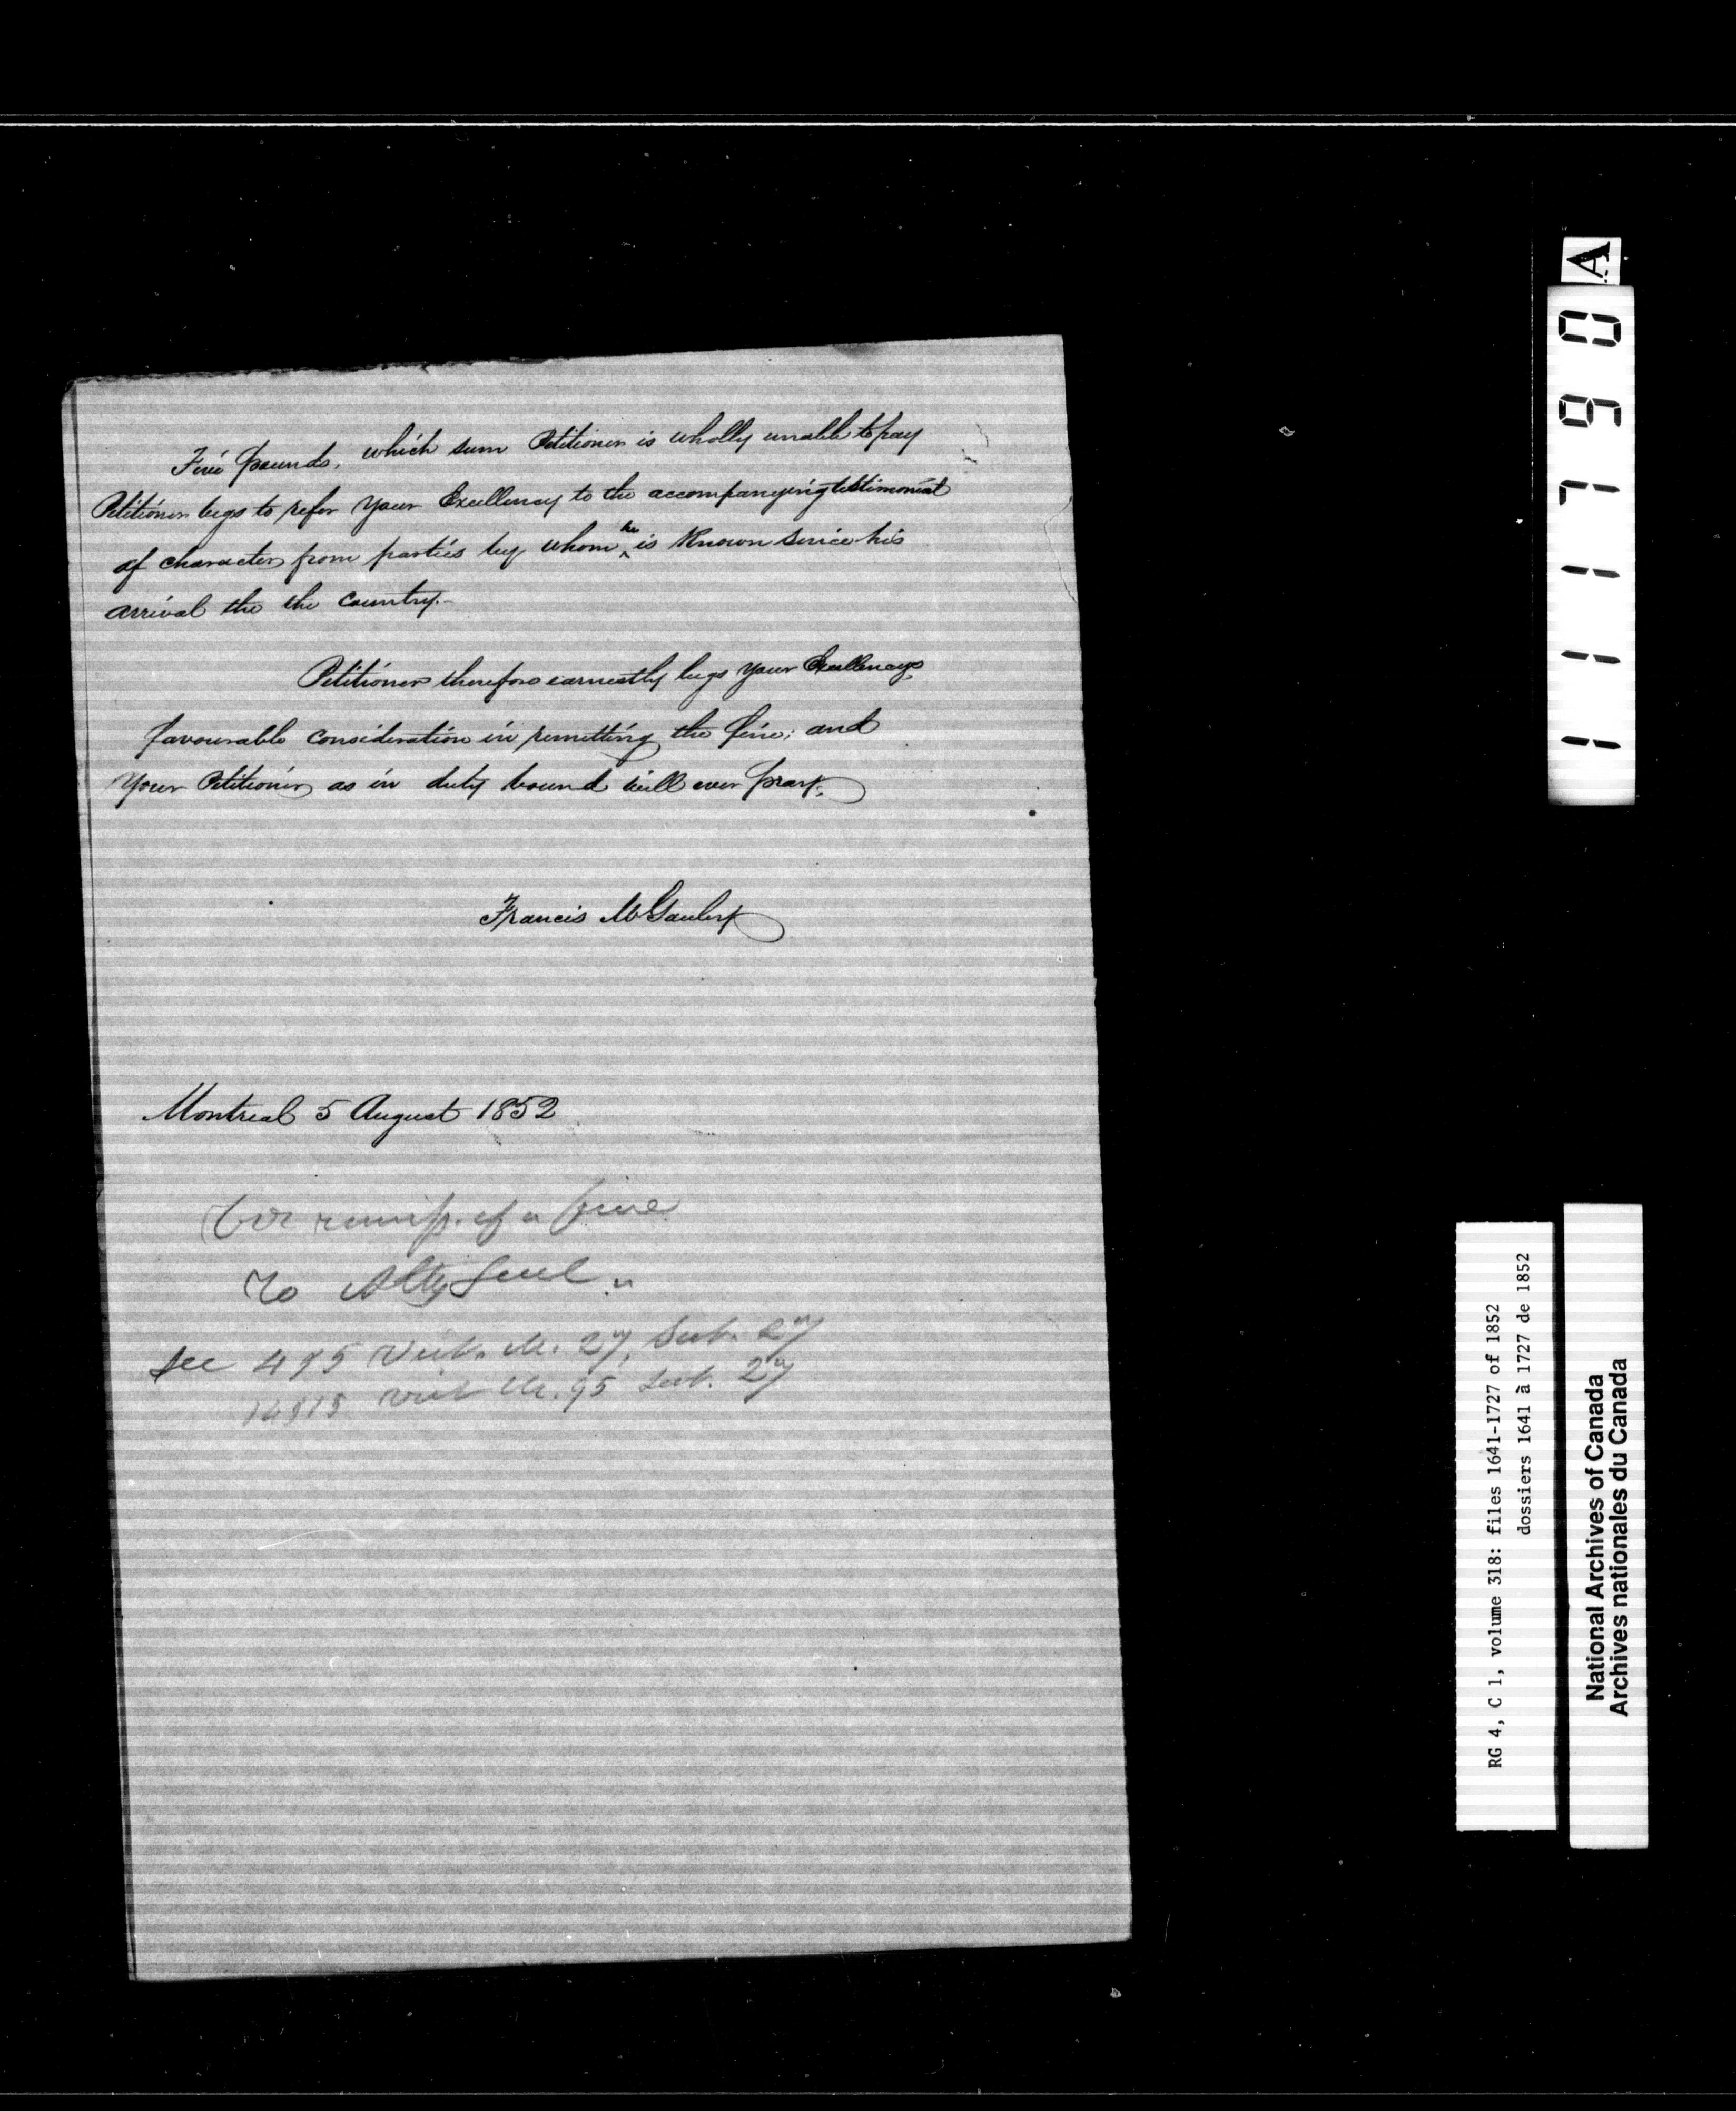 Five pounds, which sum Petitioner is wholly unable to pay
Petitioner begs to refer Your Excellency to the accompanying testimonial
of character from parties by whom he is Known since his
arrival the the Country.-
Petitioner therefore earnestly begs Your Excellencys
favourable consideration in remitting the fine; and
Your Petitioner as in duty bound will ever pray.
Francis
Montreal 5 August 1852
for remiss. of a fine
To Atty Genl.
See
A
111790
RG 4, C 1, volume 318: files 1641-1727 of 1852
dossiers 1641 à 1727 de 1852
National Archives of Canada
Archives nationales du Canada